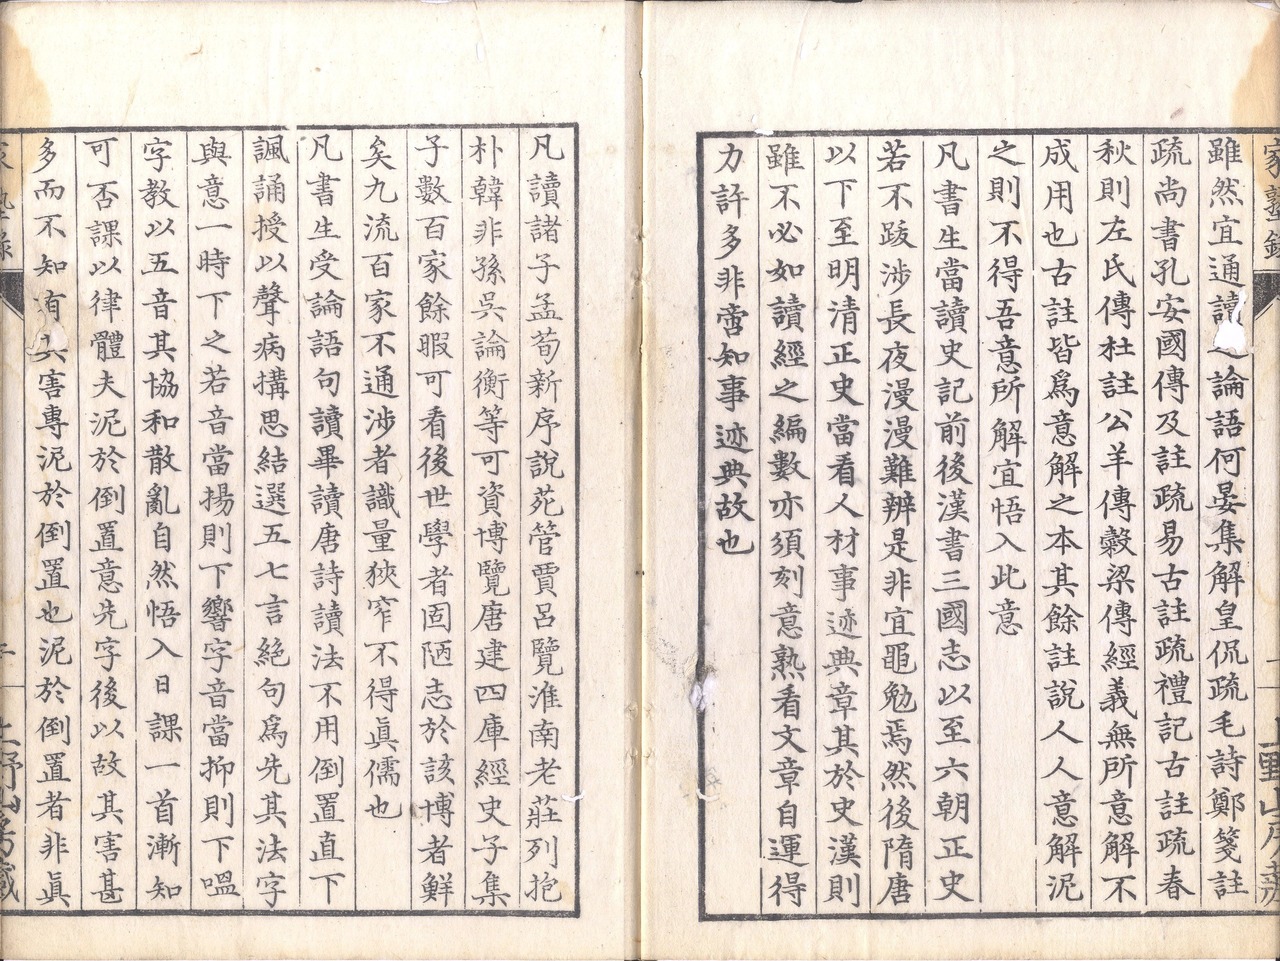 家塾錄
雖然宜通讀論語何晏集解皇侃疏毛詩鄭箋註
疏尚書孔安國傳及註疏易古註疏禮記古註疏春
秋則左氏傳杜註公羊傳穀梁傳經義無所意解不
成用也古註皆爲意解之本其餘註說人人意解泥
之則不得吾意所解宜悟入此意
凡書生當讀史記前後漢書三國志以至六朝正史
若不跋涉長夜漫漫難辨是非宜黽勉焉然後隋唐
以下至明清正史當看人材事迹典章其於史漢則
雖不必如讀經之編數亦須刻意熟看文章自運得
力許多非啻知事迹典故也
凡讀諸子孟荀新序說苑管賈呂覽淮南老莊列抱
朴韓非孫吳論衡等可資博覽唐建四庫經史子集
子數百家餘暇可看後世學者固陋志於該博者鮮
矣九流百家不通涉者識量狹窄不得眞儒也
凡書生受論語句讀畢讀唐詩讀法不用倒置直下
諷誦授以聲病搆思結選五七言絕句爲先其法字
與意一時下之若音當揚則下響字音當抑則下嗢
字教以五音其協和散亂自然悟入日課一首漸知
可否課以律體夫泥於倒置意先字後以故其害甚
多而不知有其害專泥於倒置也泥於倒置者非眞